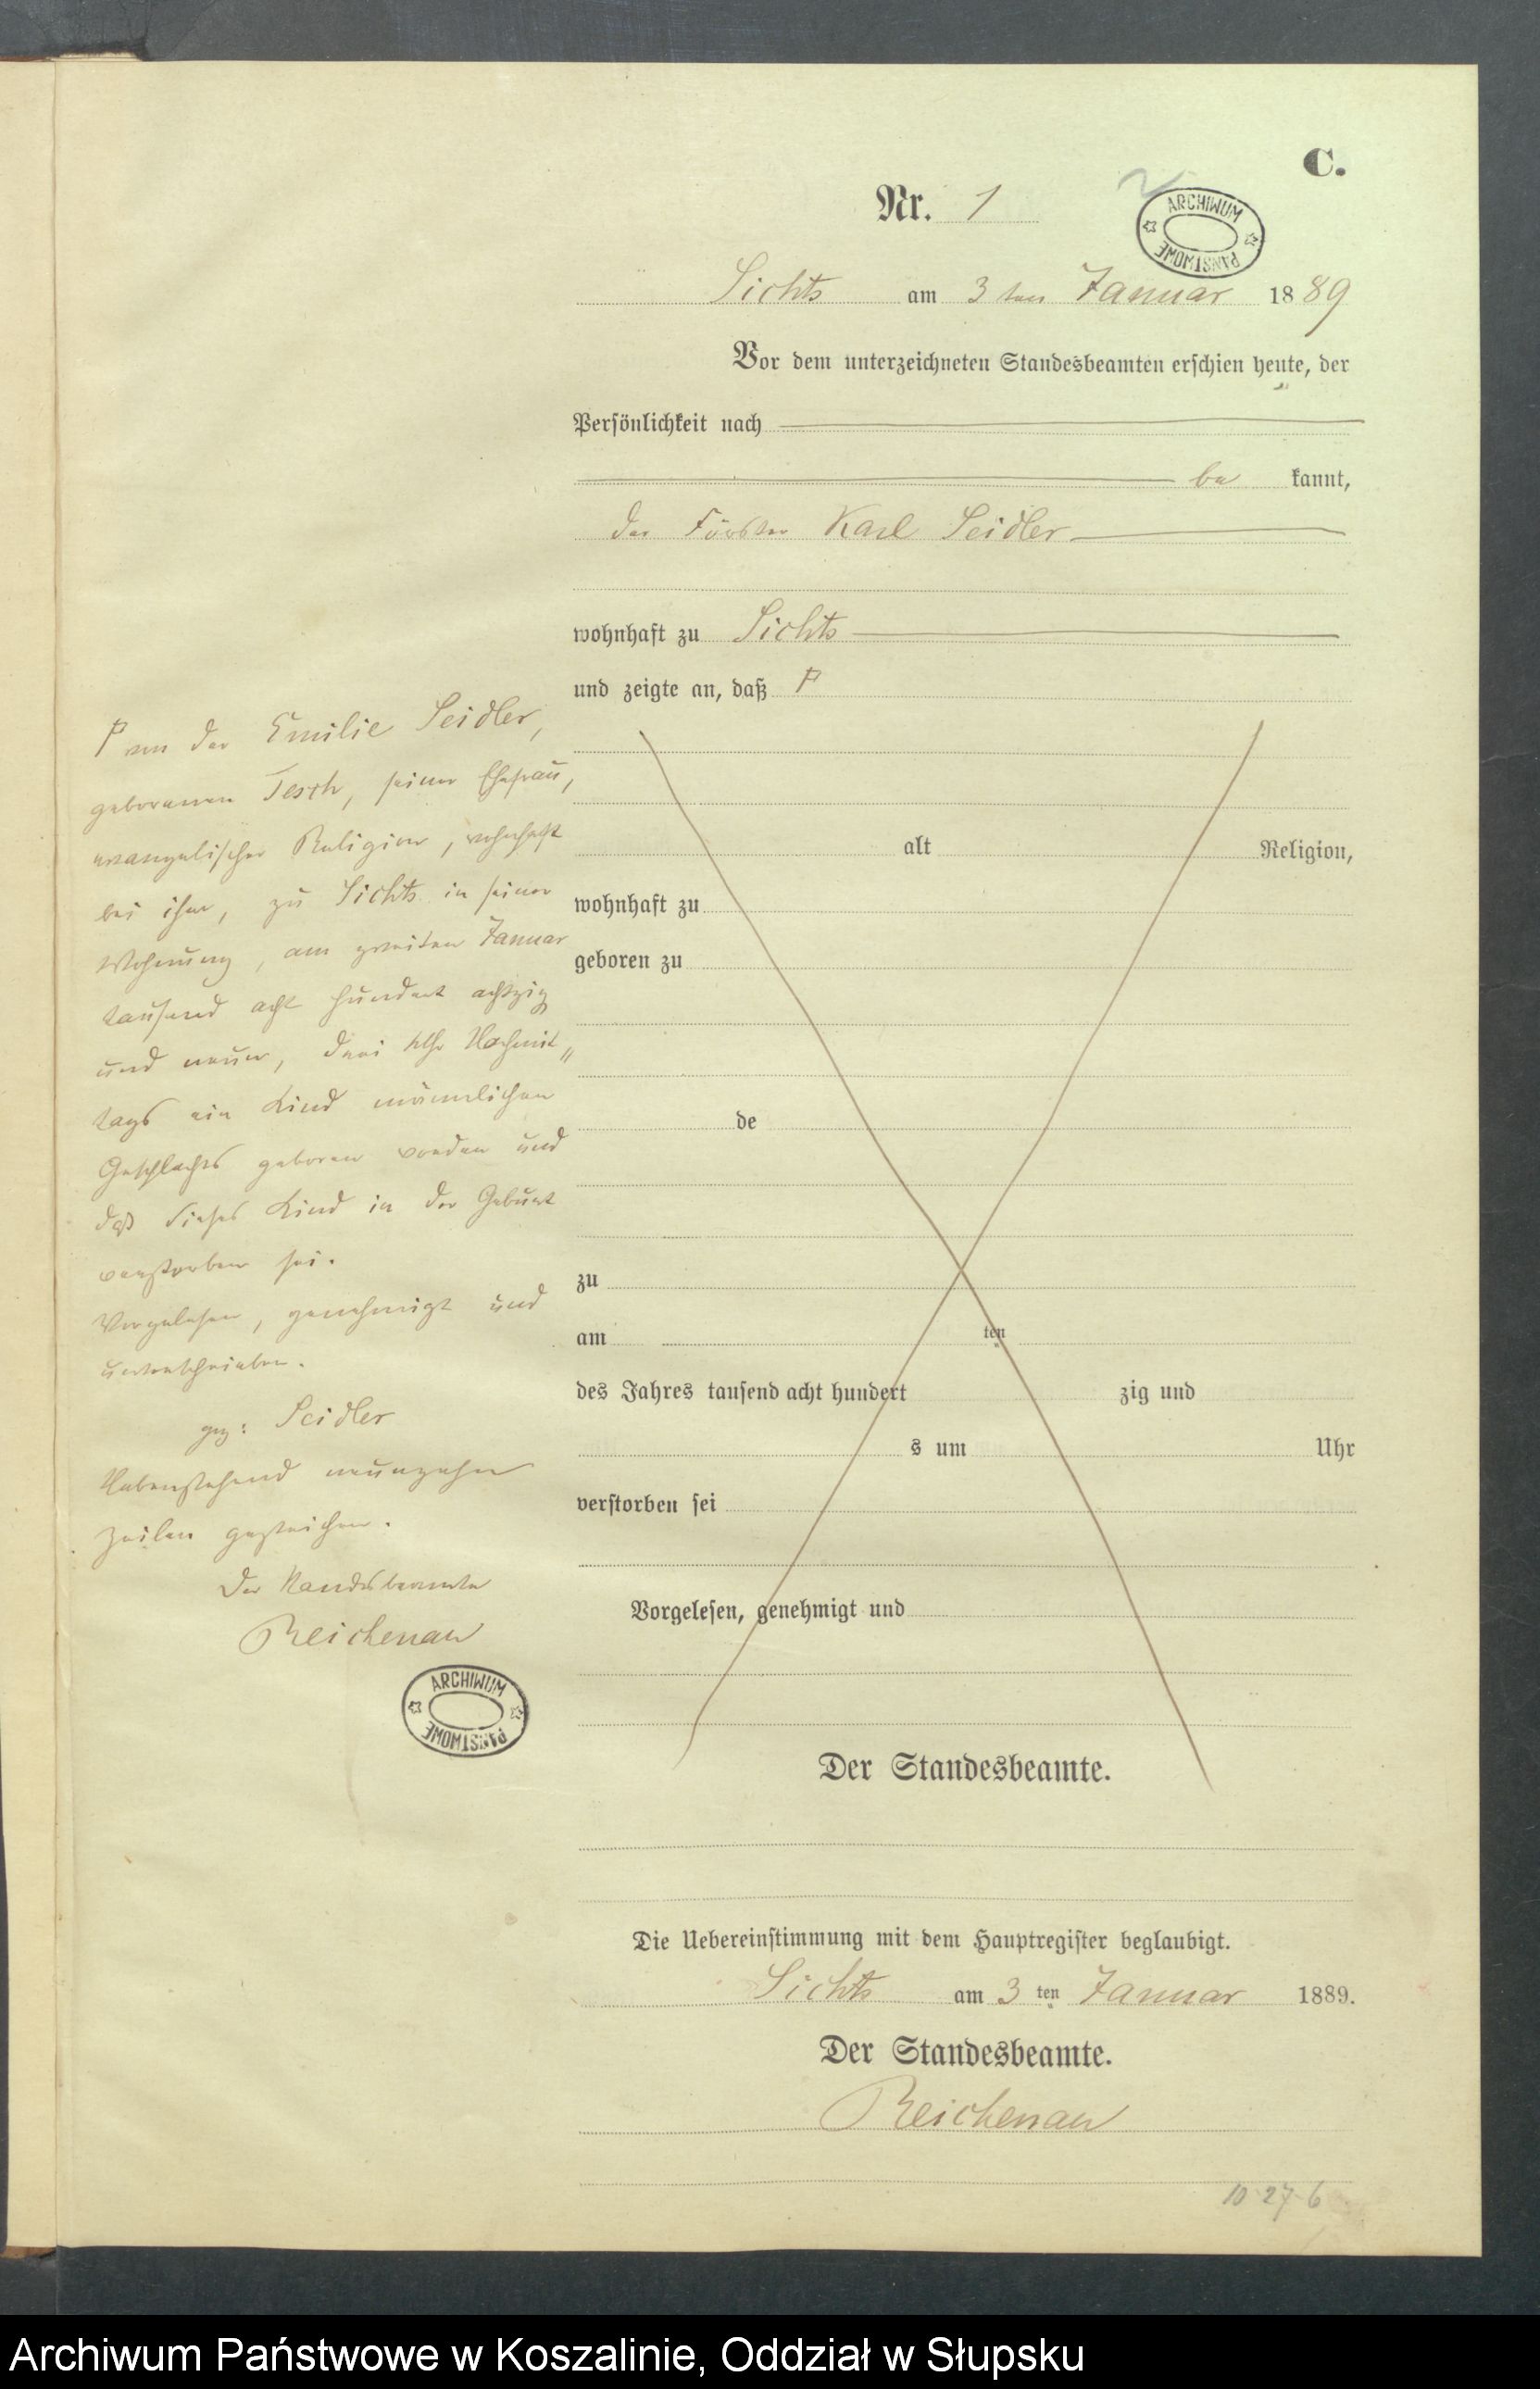 C.
Nr. 1
ARCHIWUM PAŃSTWOWE
Sichts am 3 ten Januar 1889
Vor dem unterzeichneten Standesbeamten erschien heute, der
Persönlichkeit nach
be kannt,
der Förster Karl Seidler
wohnhaft zu Sichts
und zeigte an, daß F
F von der Emilie Seidler,
geborenen Tesch, seiner Ehefrau,
evangelischer Religion, wohnhaft
bei ihm, zu Sichts in seiner
Wohnung, am zweiten Januar
tausend acht hundert achtzig
und neun, drei Uhr Nachmit„
tags ein Kind männlichen
Geschlechts geboren worden und
daß dieses Kind in der Geburt
verstorben sei.
Vorgelesen, genehmigt und
unterschrieben.
gez: Seidler
Nebenstehend neunzehn
Zeilen gestrichen.
Der Standesbeamte
Reichenau
ARCHIWUM PAŃSTWOWE
alt Religion,
wohnhaft zu
geboren zu
de
zu
am ten
des Jahres tausend acht hundert zig und
s um Uhr
verstorben sei
Vorgelesen, genehmigt und
Der Standesbeamte.
Die Uebereinstimmung mit dem Hauptregister beglaubigt.
Sichts am 3 ten Januar 1889.
Der Standesbeamte.
Reichenau
10-27-6
Archiwum Państwowe w Koszalinie, Oddział w Słupsku